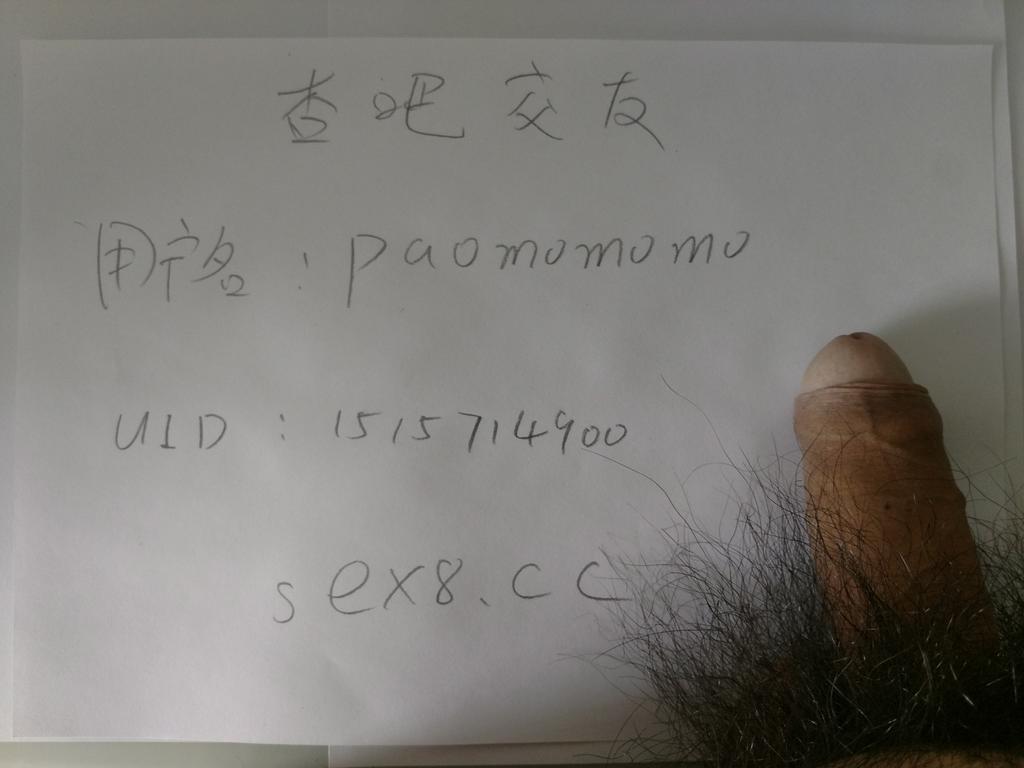 杏吧交友
用户名：paomomomo
UID：1515714900
sex8.cc